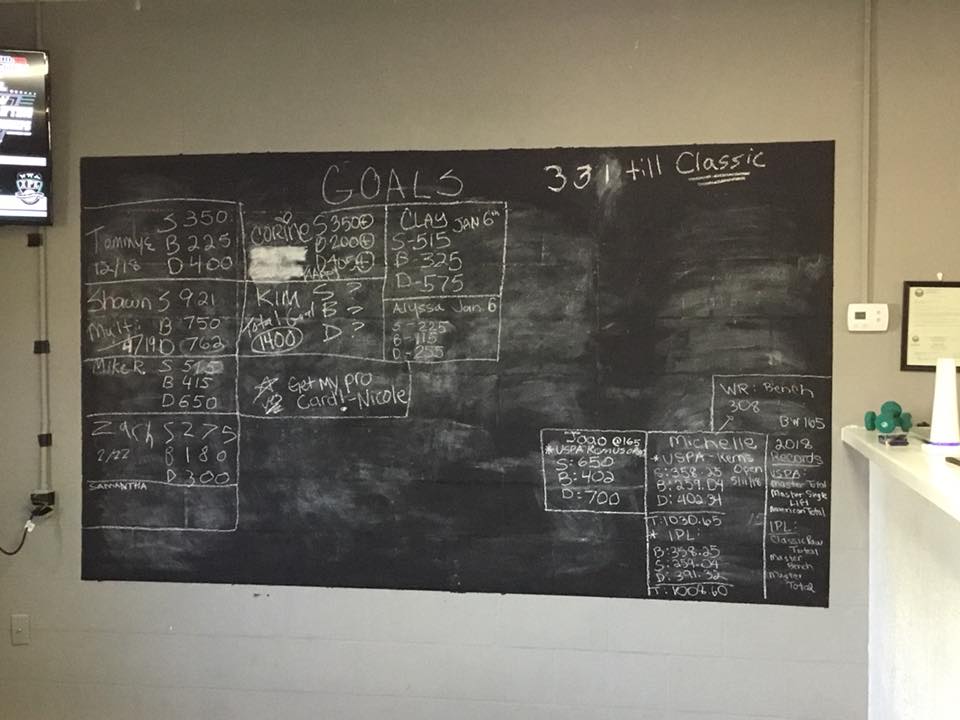 GOALS
331 till Classic
S 350
Tammy B 225
12/18 D 400
Corine S 350
B 200
D 405
CLAY JAN 6th
S-515
B-325
D-575
Shawn S 921
Multi B 750
4/19 D 762
KIM S ?
Total Goal B ?
1400 D ?
Alyssa Jan. 6
S-225
B-115
D-255
Mike R. S 515
B 415
D 650
Get My pro
Card! -Nicole
Zach S 275
2/22 B 180
D 300
SAMANTHA
WR: Bench
308
BW 165
Joao @165
*USPA
S: 650
B: 402
D: 700
Michelle
*USPA-Kerns
S: 358.25 Open
B: 259.04 5/11/18
D: 402.34
T: 1030.65
* IPL:
B: 358.25
S: 259.04
D: 391.32
T: 1004.60
2018
Records
USPA:
Master Total
Master Single
Lift
American Total
IPL:
Classic Raw
Total
Master
Bench
Master
Total